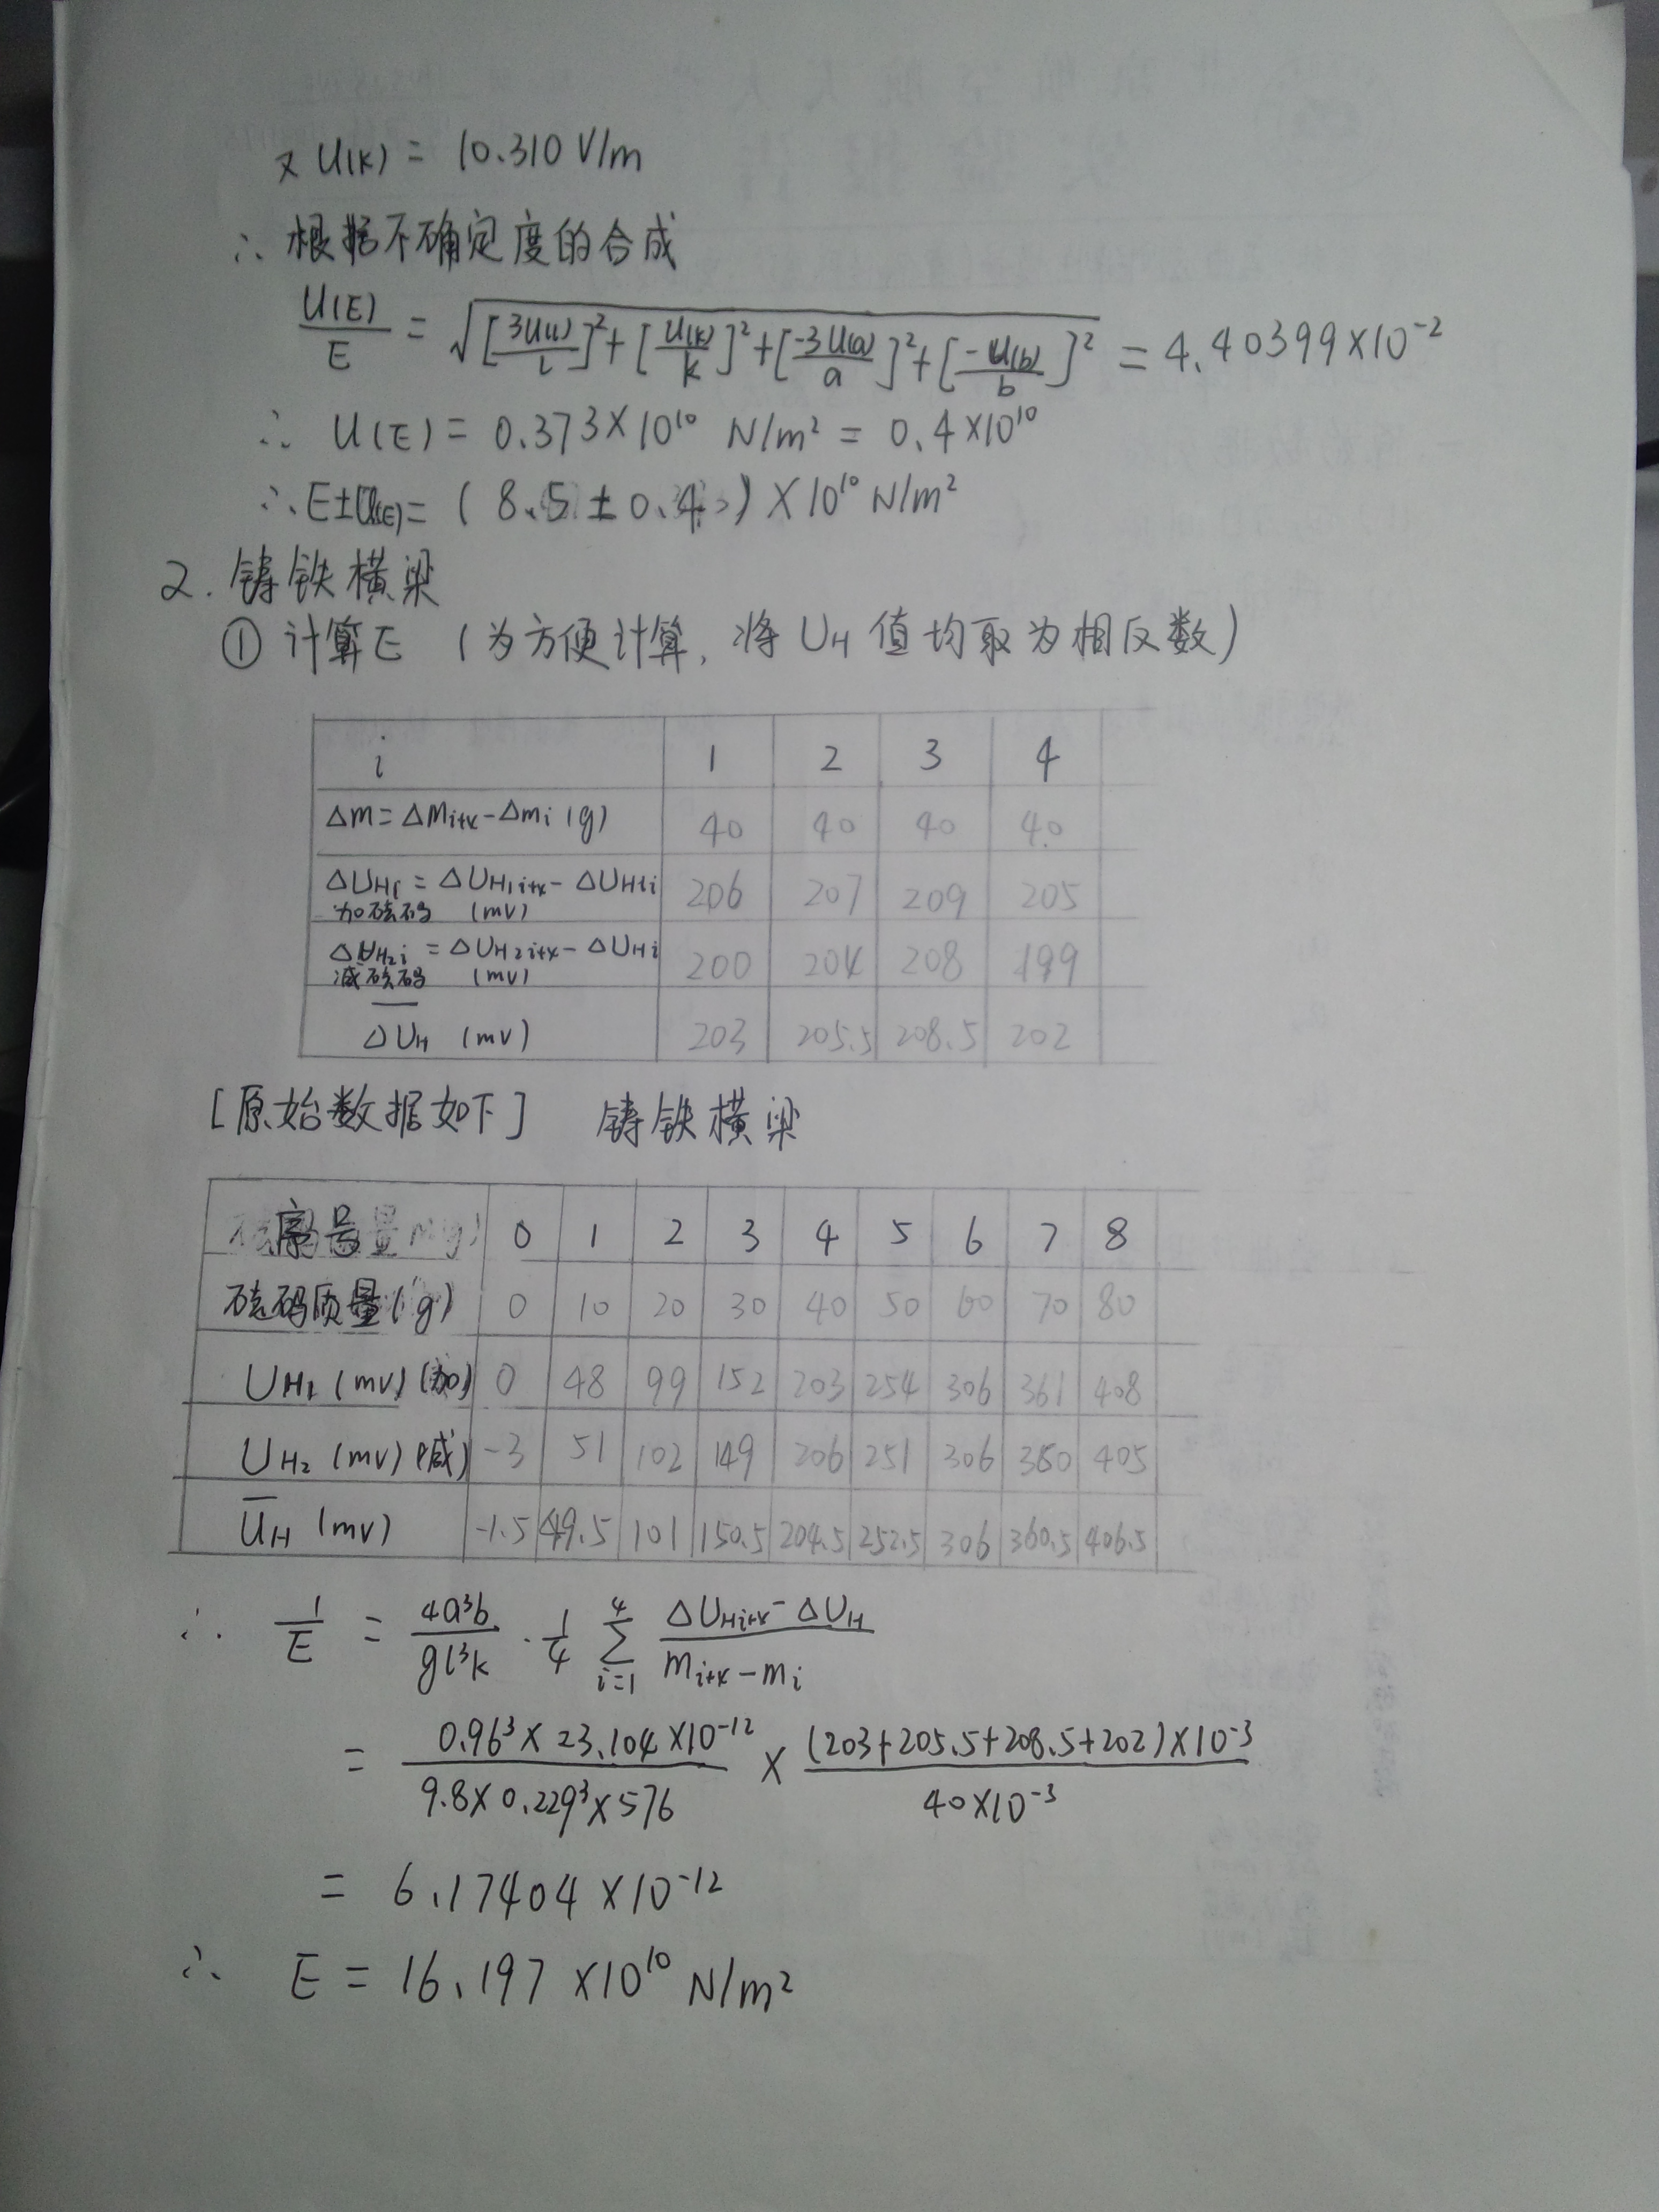 又 U(k) = 10.310 V/m
∴ 根据不确定度的合成
U(E)/E = √([3U(l)/l]² + [U(k)/k]² + [-3U(a)/a]² + [-U(b)/b]²) = 4.40399×10⁻²
∴ U(E) = 0.373×10¹⁰ N/m² = 0.4×10¹⁰
∴ E±U(E) = (8.5 ± 0.4) ×10¹⁰ N/m²
2. 铸铁横梁
① 计算E (为方便计算, 将 U_H 值均取为相反数)
i 1 2 3 4
Δm = Δm_{i+k} - Δm_i (g) 40 40 40 40
ΔU_{H1} = ΔU_{H1 i+k} - ΔU_{H1i} 206 207 209 205
加砝码 (mV)
ΔU_{H2i} = ΔU_{H2 i+k} - ΔU_{Hi} 200 204 208 199
减砝码 (mV)
Δ͞U_H (mV) 203 205.5 208.5 202
[原始数据如下] 铸铁横梁
序号 0 1 2 3 4 5 6 7 8
砝码质量(g) 0 10 20 30 40 50 60 70 80
U_{H1} (mV) (加) 0 48 99 152 203 254 306 361 408
U_{H2} (mV) (减) -3 51 102 149 206 251 306 360 405
U̅_H (mV) -1.5 49.5 101 150.5 204.5 252.5 306 360.5 406.5
∴ 1/E = 4a³b/gl³k · 1/4 Σ_{i=1}^{4} (ΔU_{Hi+k} - ΔU_H)/(m_{i+k} - m_i)
= (0.96³ × 23.104 ×10⁻¹²)/(9.8 × 0.229³ × 576) × ((203+205.5+208.5+202)×10⁻³)/(40×10⁻³)
= 6.17404 ×10⁻¹²
∴ E = 16.197 ×10¹⁰ N/m²